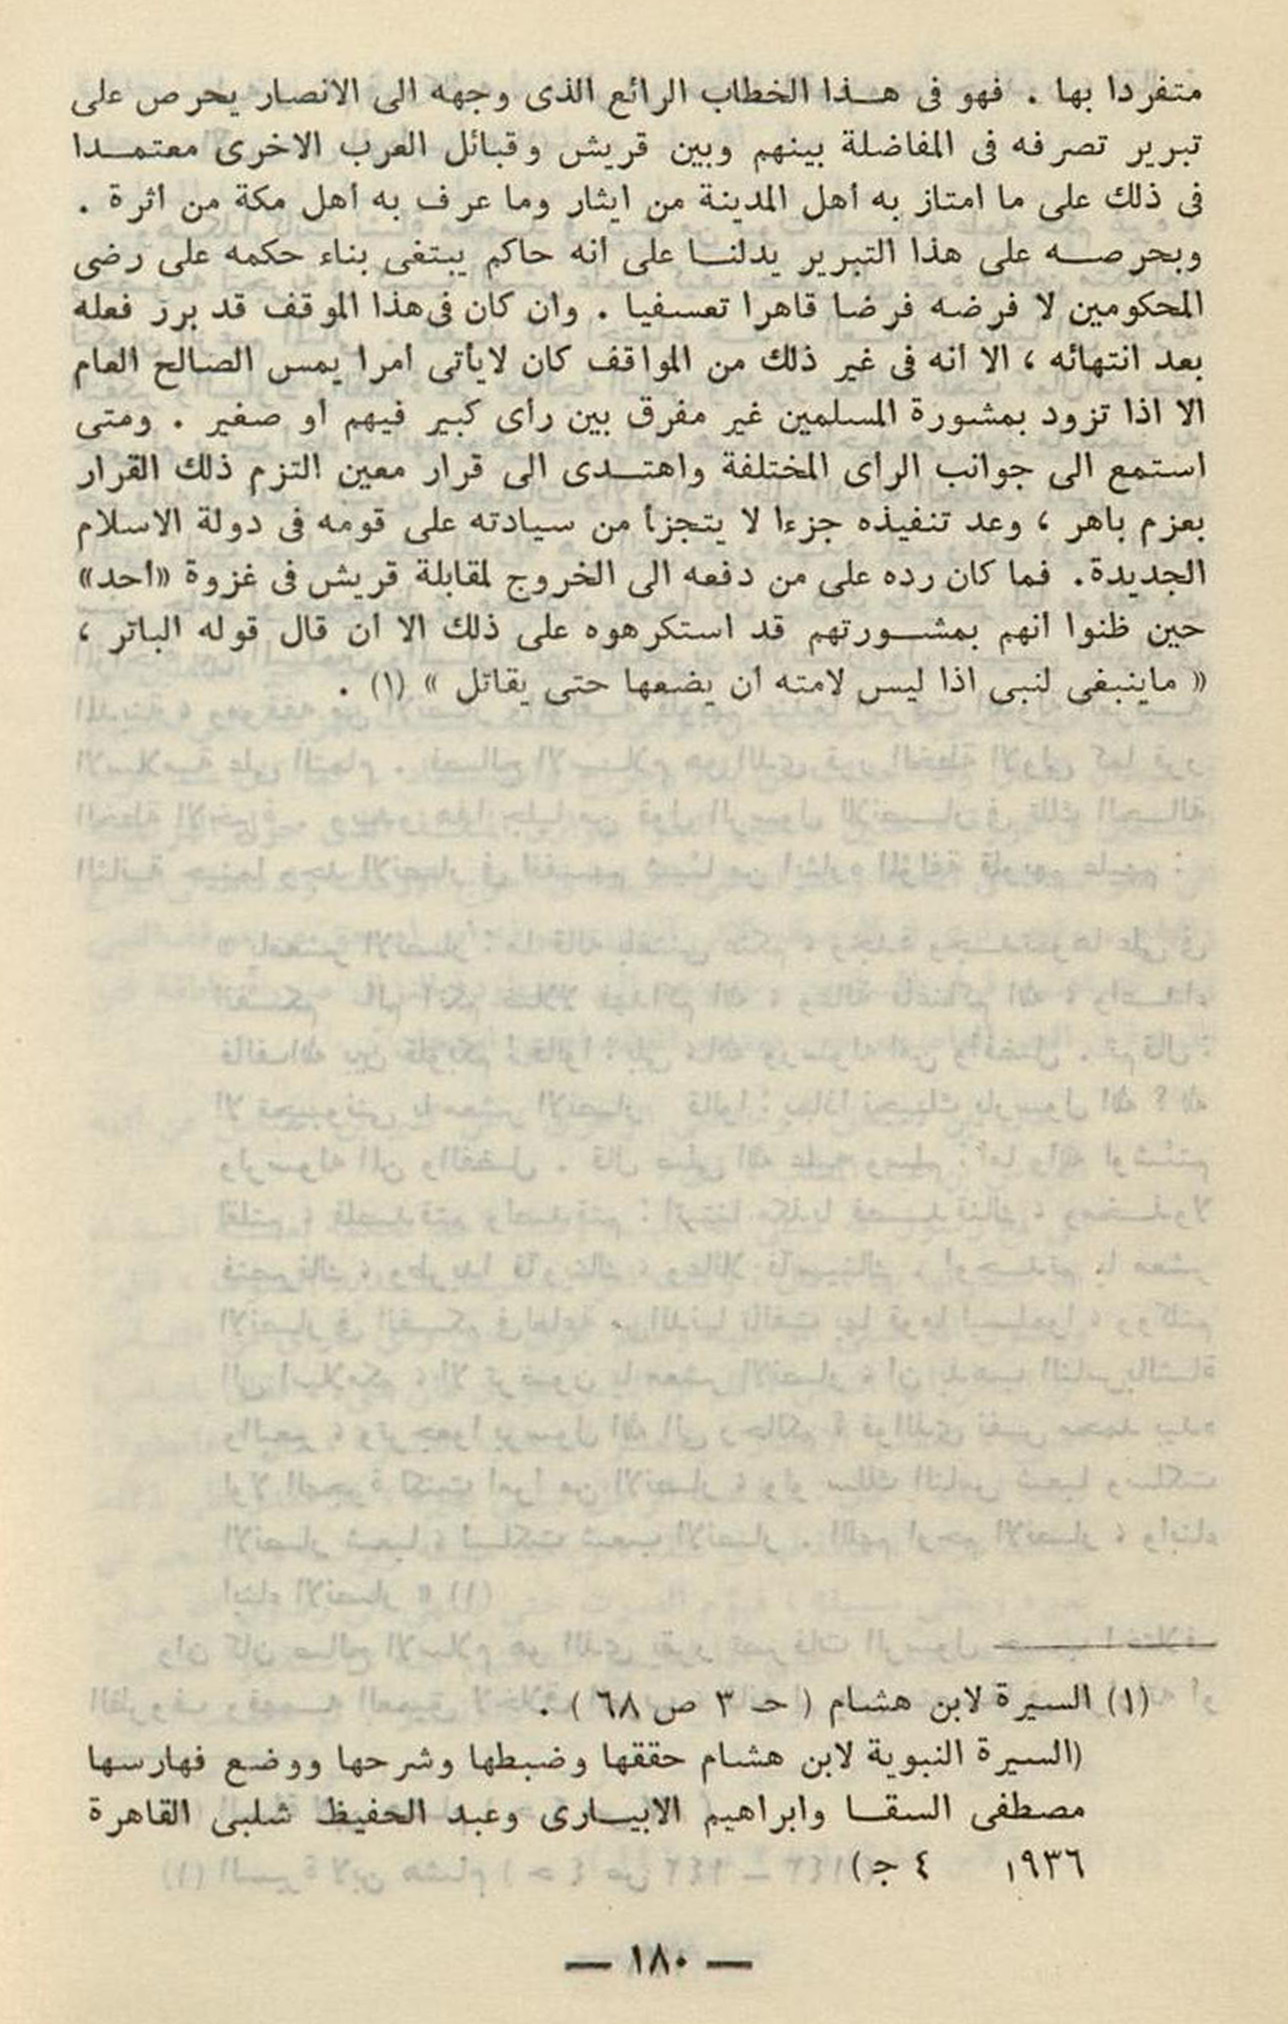 متفردا بها . فهو فى هذا الخطاب الرائع الذى وجهه الى الانصار يحرص على
تبرير تصرفه فى المفاضلة بينهم وبين قريش وقبائل العرب الاخرى معتمدا
فى ذلك على ما امتاز به أهل المدينة من ايثار وما عرف به أهل مكة من أثرة .
وبحرصه على هذا التبرير يدلنا على أنه حاكم يبتغى بناء حكمه على رضى
المحكومين لا فرضه فرضا قاهرا تعسفيا . وان كان فى هذا الموقف قد برر فعله
بعد انتهائه ، الا أنه فى غير ذلك من المواقف كان لايأتى أمرا يمس الصالح العام
الا اذا تزود بمشورة المسلمين غير مفرق بين رأى كبير فيهم أو صغير . ومتى
استمع الى جوانب الرأى المختلفة واهتدى الى قرار معين التزم ذلك القرار
بعزم باهر ، وعد تنفيذه جزءا لا يتجزأ من سيادته على قومه فى دولة الاسلام
الجديدة. فما كان رده على من دفعه الى الخروج لمقابلة قريش فى غزوة «أحد»
حين ظنوا أنهم بمشورتهم قد استكرهوه على ذلك الا أن قال قوله الباتر ،
« ماينبغى لنبى اذا لبس لامته أن يضعها حتى يقاتل » (١) .
(١) السيرة لابن هشام ( حـ ٣ ص ٦٨ ) .
(السيرة النبوية لابن هشام حققها وضبطها وشرحها ووضع فهارسها
مصطفى السقا وابراهيم الابيارى وعبد الحفيظ شلبى القاهرة
١٩٣٦ ٤ ج)
— ١٨٠ —